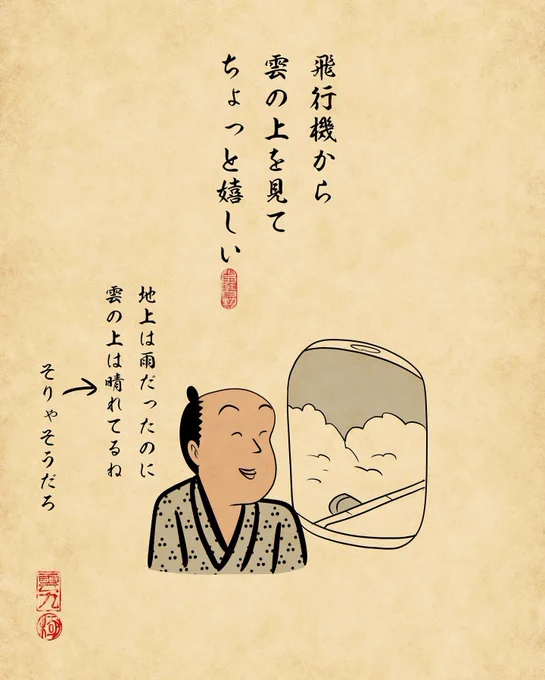 飛行機から
雲の上を見て
ちょっと嬉しい
地上は雨だったのに
雲の上は晴れてるね
そりゃそうだろ